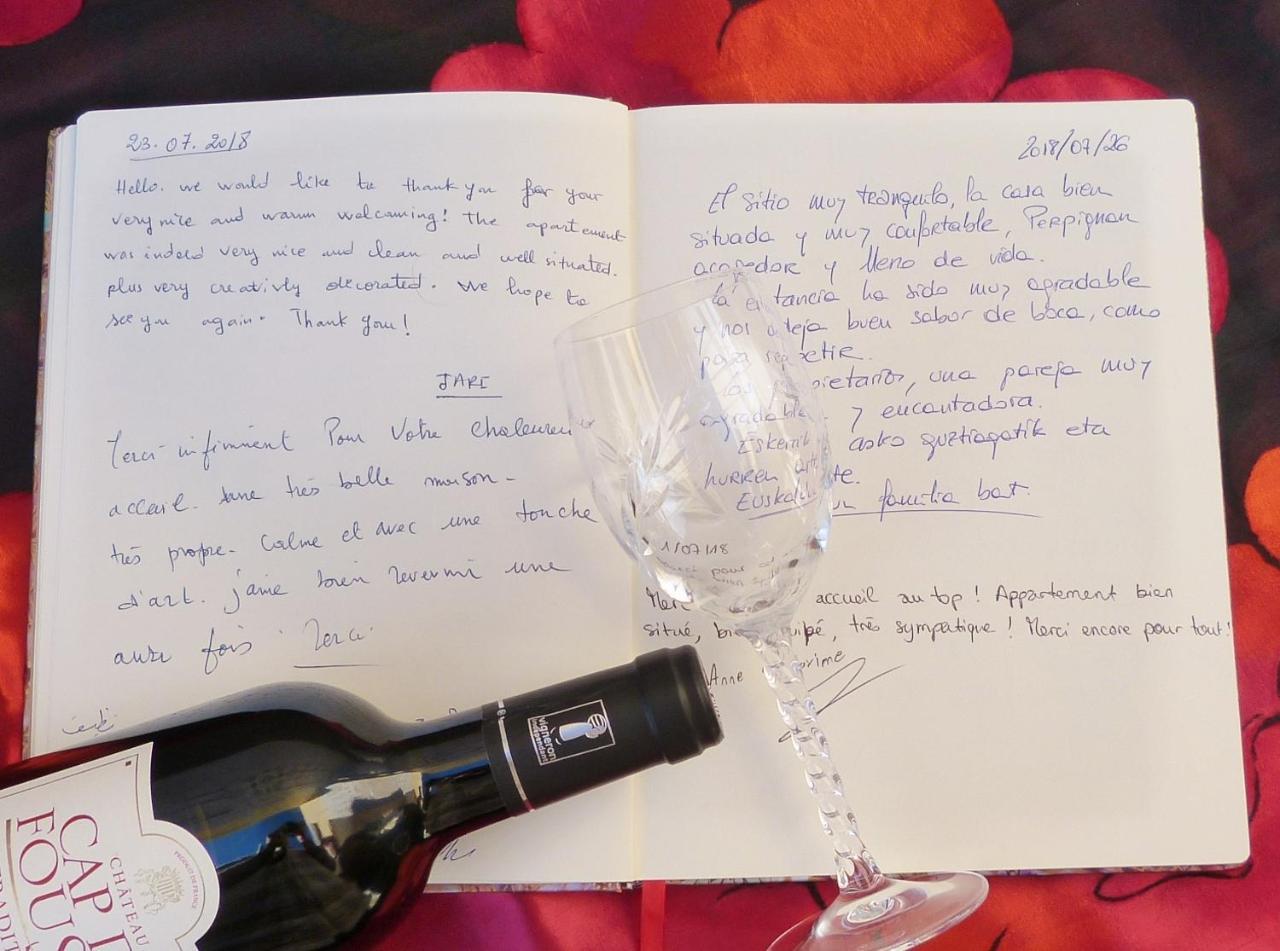 23.07.2018
Hello. we would like to thank you for your
very nice and warm welcoming! the apartement
was indeed very nice and clean and well situated.
plus very creativly decorated. We hope to
see you again. Thank you!
JARI
Merci infiniment Pour Votre chaleureux
acceuil. Une très belle maison-
très propre. Calme et avec une touche
d'art. j'aime bien revenir une
autre fois Merci
2018/07/26
El sitio muy tranquilo, la casa bien
situada y muy confortable, Perpignan
acogedor y lleno de vida.
la estancia ha sido muy agradable
y nos deja buen sabor de boca, como
para repetir.
los propietarios, una pareja muy
agradable y encantadora.
Eskerrik asko guztiagatik eta
hurren arte.
familia bat.
1/07/18
Merci accueil au top! Appartement bien
situé, bien équipé, très sympatique! Merci encore pour tout!
Anne
vigneron
indépendant
CHÂTEAU
CAP
FOUS
TRADIT